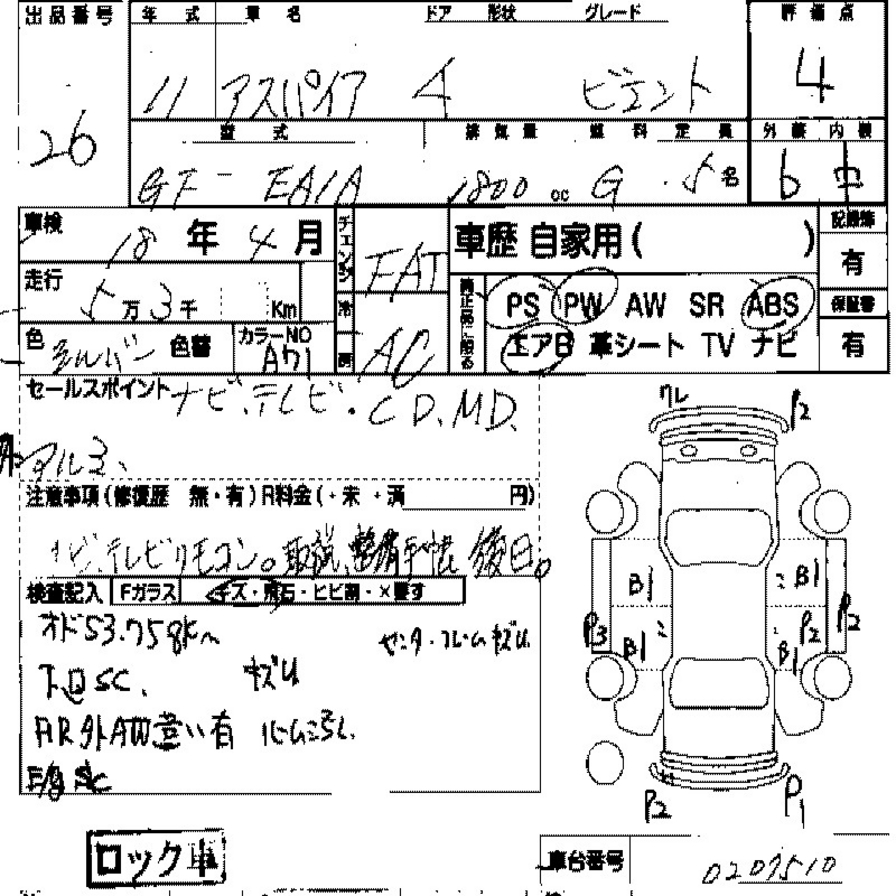 出品番号 年式 車名 ドア 形状 グレード 評価点
26 11 アスパイア 4 ビエント 4
型式 排気量 燃料 定員 外装 内装
GF- EA1A 1800 cc G 5名 b
車検 18年4月 チェンジ FAT 車歴 自家用( ) 記録簿 有
走行 5万3千 Km 冷房 AC 純正品に限る PS PW AW SR ABS 保証書 有
色 シルバー 色替 カラーNO A71 エアB 革シート TV ナビ
セールスポイント ナビ、テレビ・CD、MD、
アルミ、
注意事項(修復歴 無・有)R料金(・未 ・済 円)
ナビ、テレビリモコン。取説、整備手帳 後日。
検査記入 Fガラス キズ・飛石・ヒビ割・×要す
オド53.758km センタ・フレームキズU
下回SC. キズU
FR外AW違い有
SC
ワレ P2
B1 B1
P3 B1 P2 B1 P2
P2 P1
ロック車
車台番号 0207510